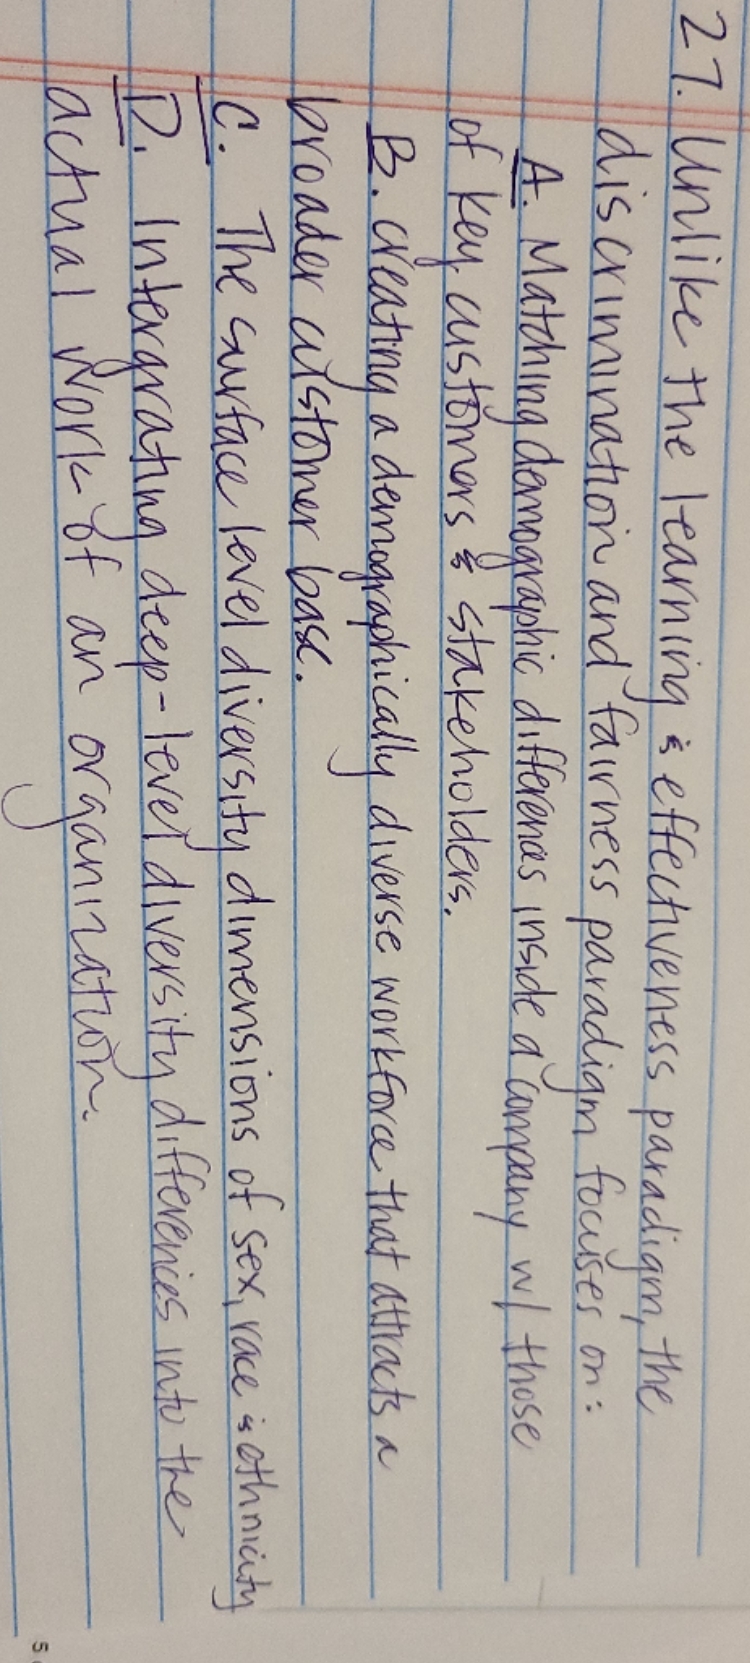 27. Unlike the learning & effectiveness paradigm, the
discrimination and fairness paradigm focuses on:
A. Matching demographic differences inside a company w/ those
of key customers & stakeholders.
B. creating a demographically diverse workforce that attracts a
broader customer base.
C. The surface level diversity dimensions of sex, race & ethnicity
D. Intergrating deep-level diversity differences into the
actual work of an organization.
5